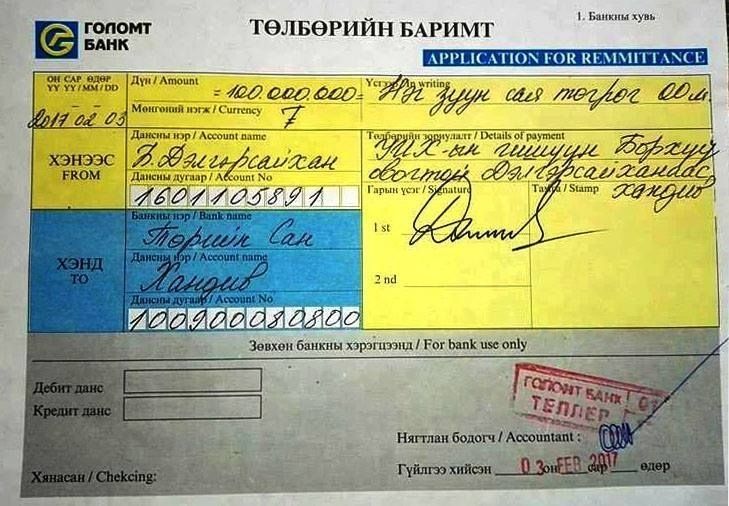 ГОЛОМТ БАНК
ТӨЛБӨРИЙН БАРИМТ
1. Банкны хувь
APPLICATION FOR REMMITTANCE
ОН САР ӨДӨР
YY YY / MM / DD
2017 02 03
Дүн / Amount
=100.000.000=
Мөнгөний нэгж / Currency
₮
Үсгээр / In writing
Нэг зуун сая төгрөг 00 м.
ХЭНЭЭС
FROM
Дансны нэр / Account name
Б. Дэлгэрсайхан
Дансны дугаар / Account No
1601105891
Төлбөрийн зориулалт / Details of payment
УИХ-ын гишүүн Боржигон
овогтой Дэлгэрсайханаас
хандив
Гарын үсэг / Signature
Тамга / Stamp
1 st
2 nd
ХЭНД
TO
Банкны нэр / Bank name
Төрийн Сан
Дансны нэр / Account name
Хандив
Дансны дугаар / Account No
100900080800
Зөвхөн банкны хэрэгцээнд / For bank use only
Дебит данс
Кредит данс
ГОЛОМТ БАНК 01
ТЕЛЛЕР
Нягтлан бодогч / Accountant :
Гүйлгээ хийсэн 03 он FEB сар 2017 өдөр
Хянасан / Chekcing: